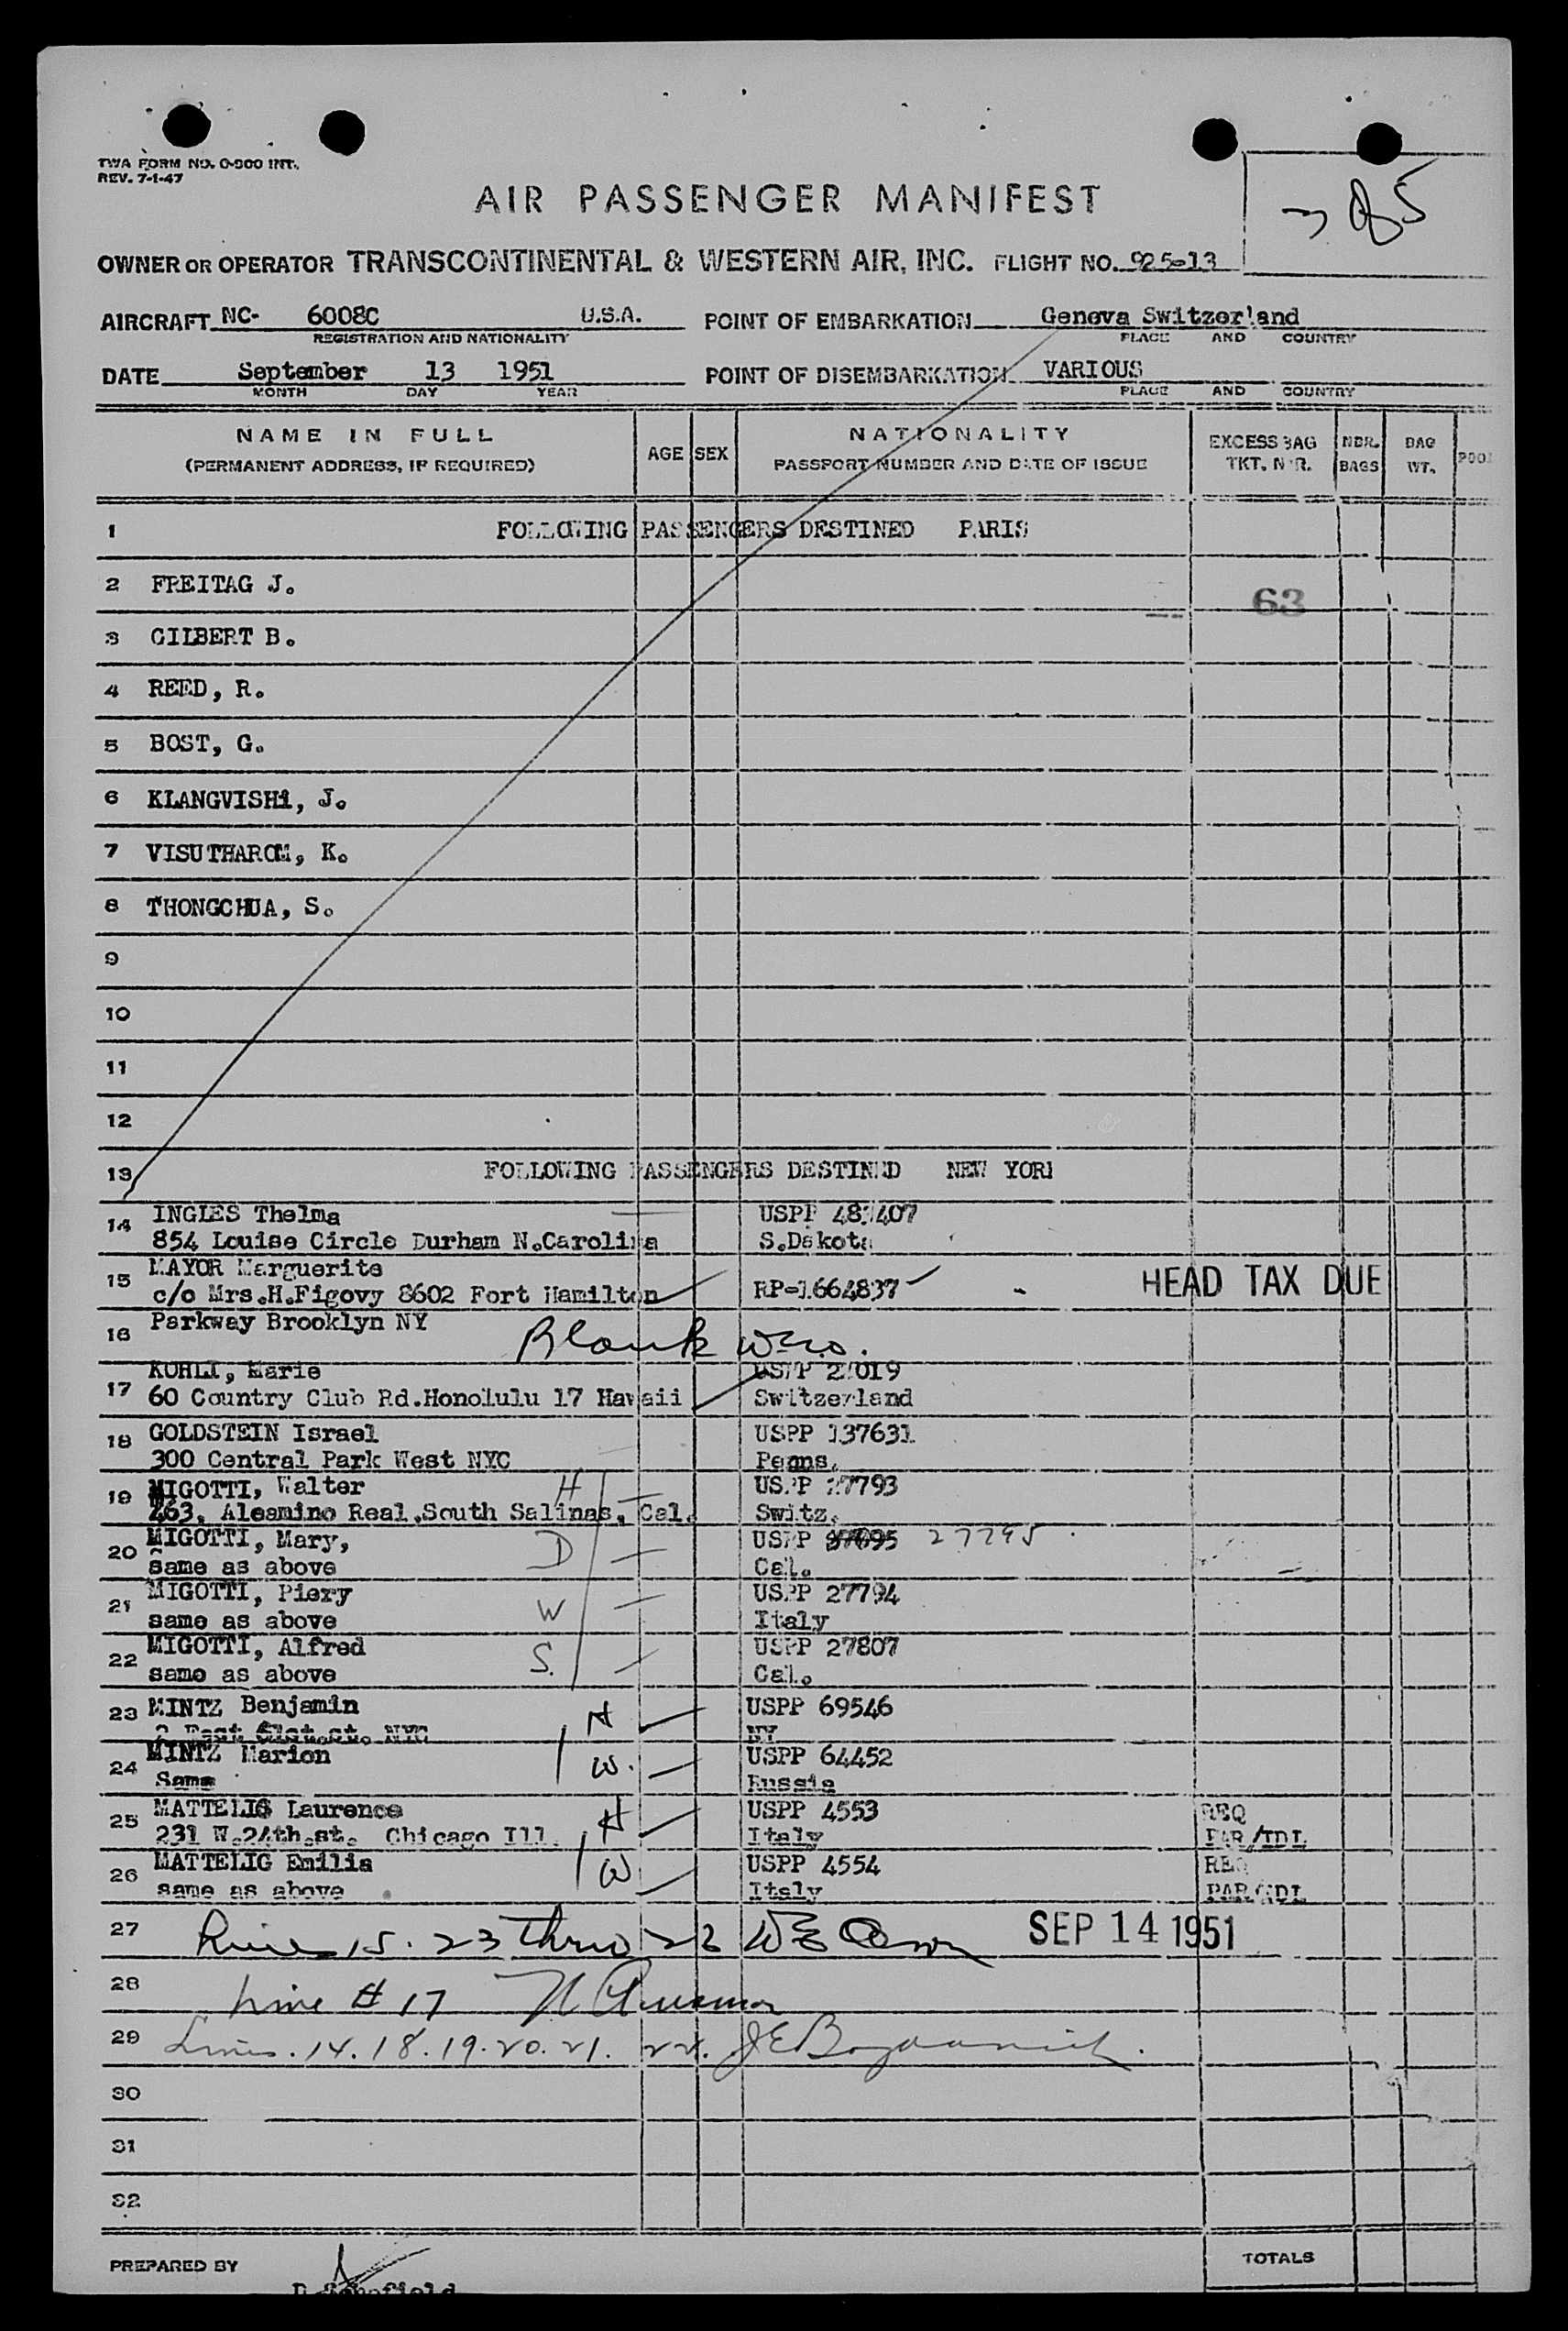 TWA FORM NO. O-900 INT.
REV. 7-1-47
AIR PASSENGER MANIFEST
OWNER OR OPERATOR TRANSCONTINENTAL & WESTERN AIR, INC. FLIGHT NO. 925-13
AIRCRAFT NC- 6008C U.S.A. POINT OF EMBARKATION Geneva Switzerland
REGISTRATION AND NATIONALITY PLACE AND COUNTRY
DATE September 13 1951 POINT OF DISEMBARKATION VARIOUS
MONTH DAY YEAR PLACE AND COUNTRY
NAME IN FULL AGE SEX NATIONALITY EXCESS BAG NBR. BAG
(PERMANENT ADDRESS, IF REQUIRED) PASSPORT NUMBER AND DATE OF ISSUE TKT. NBR. BAGS WT.
1 FOLLOWING PASSENGERS DESTINED PARIS
2 FREITAG J. 63
3 GILBERT B.
4 REED, R.
5 BOST, G.
6 KLANGVISHI, J.
7 VISUTHAROM, K.
8 THONGCHUA, S.
9
10
11
12
13 FOLLOWING PASSENGERS DESTINED NEW YORK
14 INGLES Thelma USPP
854 Louise Circle Durham N.Carolina S.Dakota
15 MAYOR Marguerite
c/o Mrs.H.Figovy 8602 Fort Hamilton RP-1664837 HEAD TAX DUE
16 Parkway Brooklyn NY
Blank
17 KOHLI, Marie USPP
60 Country Club Rd.Honolulu 17 Hawaii Switzerland
18 GOLDSTEIN Israel USPP 137631
300 Central Park West NYC Penns.
19 MIGOTTI, Walter H USPP 27793
263, Alcamino Real.South Salinas, Cal. Switz.
20 MIGOTTI, Mary, D USPP 27795
same as above Cal.
21 MIGOTTI, Piery W USPP 27794
same as above Italy
22 MIGOTTI, Alfred S. USPP 27807
same as above Cal.
23 MINTZ Benjamin H USPP 69546
NYC NY
24 MINTZ Marion W. USPP 64452
Same Russia
25 MATTELIG Laurence H USPP 4553 REQ
231 W.24th.st. Chicago Ill. Italy PAR/IDL
26 MATTELIG Emilia W USPP 4554 REQ
same as above Italy PAR/IDL
27 15. 23 Thru 26 SEP 14 1951
28 Line # 17
29 Lines. 14. 18. 19. 20. 21. 22.
30
31
32
PREPARED BY TOTALS